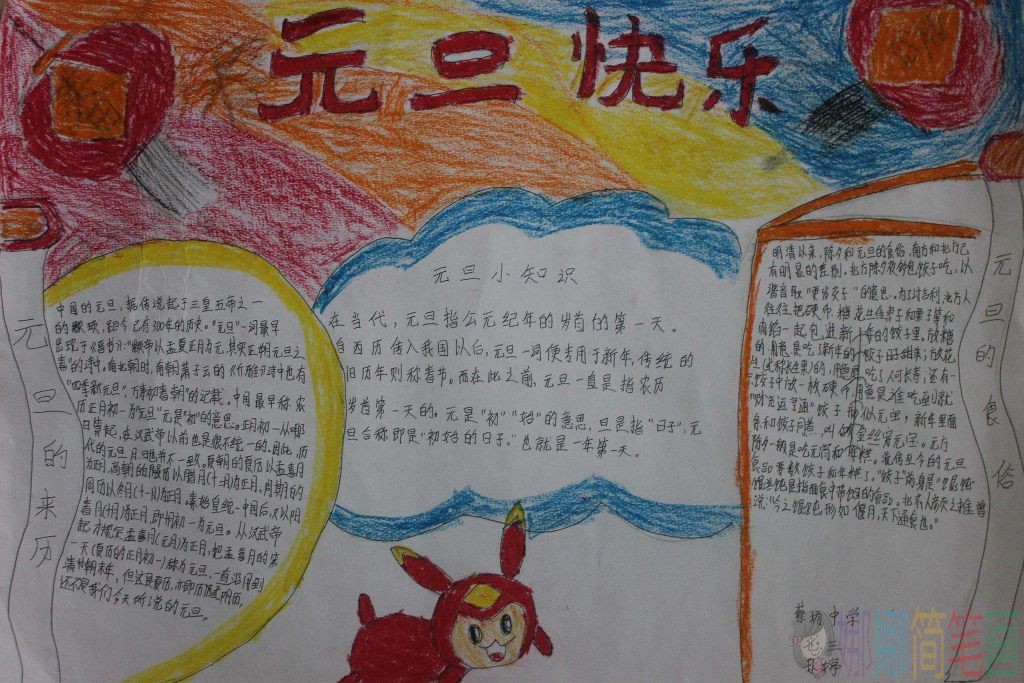 元旦快乐
元旦的来历
中国的元旦，据传说起于三皇五帝之一
的颛顼，距今已有3000年的历史。“元旦”一词最早
出现于《晋书》：“颛帝以孟夏正月为元，其实正朔元旦之
春”的诗中。南北朝时，南朝萧子云的《介雅》诗中也有
“四季新元旦，万寿初春朝”的记载。中国最早称农
历正月初一为“元旦”元是“初”的意思。正月初一从哪
日算起，在汉武帝以前也是很不统一的。因此，历
代的元旦月、日也并不一致。夏朝的夏历以孟喜月
为正月，商朝的殷历以腊月(十二月)为正月，周朝的
周历以冬月(十一月)为正月。秦始皇统一中国后，又以阳
春月(十月)为正月，即十月初一为元旦。从汉武帝
起，才规定孟喜月(元月)为正月，把孟喜月的第
一天(夏历的正月初一)称为元旦，一直沿用到
清朝末年。但这是夏历，亦即历或阴历，
还不是我们今天所说的元旦。
元旦小知识
在当代，元旦指公元纪年的岁首的第一天。
自西历传入我国以后，元旦一词便专用于新年，传统的
旧历年则称春节。而在此之前，元旦一直是指农历
岁首第一天的。元是“初”“始”的意思，旦是指“日子”，元
旦合称即是“初始的日子。”也就是一年第一天。
元旦的食俗
明清以来，除夕和元旦的食俗，南方和北方已
有明显的差别。北方除夕夜包饺子吃，以
谐音取“更岁交子”的意思。为了讨吉利，北方人
往往把硬币、糖、花生仁、枣子和栗子等和
肉馅一起包进新年的饺子里。放糖
的用意是吃了新年的饺子日子甜美；放花
生(长生果)的，用意是吃了人可长寿；还有一
饺子中放一枚硬币，用意是谁吃到就
“财运亨通”饺子形似元宝，新年里面
条和饺子同煮，叫做“金丝穿元宝。
除夕一般是吃元宵和年糕。流传至今的元旦
食品要数饺子和年糕了。
说：“今之馄饨，形如偃月，天下通食也。”
蔡坊中学
简笔画